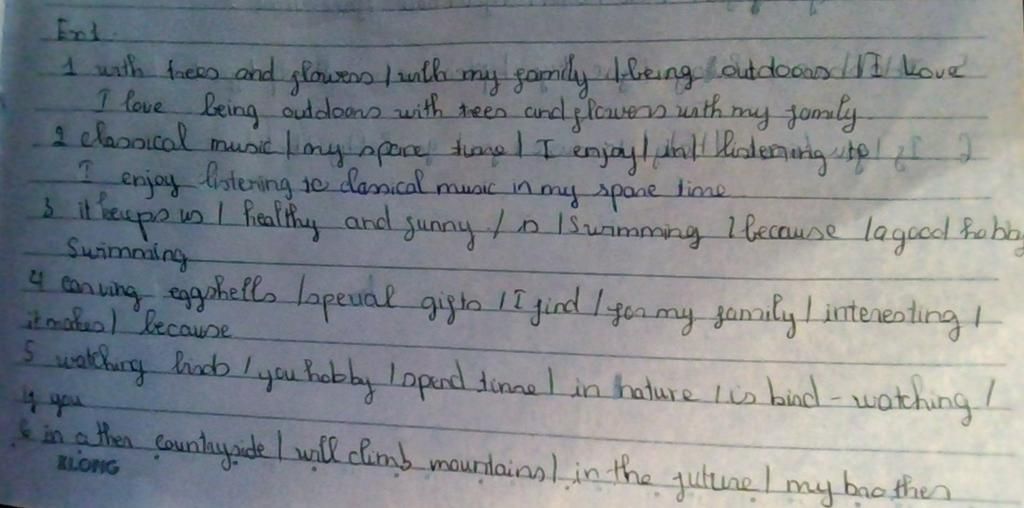 Ex1.
1 with trees and flowers / with my family / being outdoors / I love
I love being outdoors with trees and flowers with my family
2 classical music / my spare time / I enjoy / in / listening to /
I enjoy listening to classical music in my spare time
3 it keeps us / healthy and funny / is / Swimming / because / a good hobby
Swimming
4 carving eggshells / special gifts / I find / for my family / interesting /
it makes / because
5 watching birds / you hobby / spend time / in nature / is bird-watching /
if you
6 in other countryside / will climb mountains / in the future / my brother
KLONG